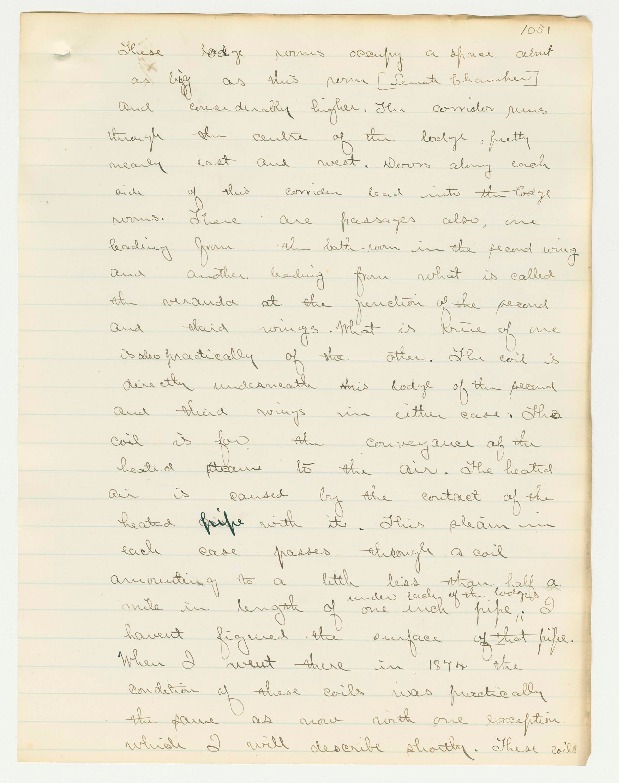 1051
These lodge rooms occupy a space about
as big as this room [Senate Chamber]
and considerably higher. The corridor runs
through the centre of the lodge, pretty
nearly east and west. Doors along each
side of this corridor lead into the lodge
rooms. There are passages also, one
leading from the bath-room in the second wing
and another leading from what is called
the veranda at the junction of the second
and third wings. What is true of one
is also practically of the other. The coil is
directly underneath this lodge of the second
and third wings in either case. The
coil is for the conveyance of the
heated steam to the air. The heated
air is caused by the contact of the
heated pipe with it. This steam in
each case passes through a coil
amounting to a little less than half a
under each of the lodges
mile in length of one inch pipe; I
havent figured the surface of that pipe.
When I went there in 1874 the
condition of these coils was practically
the same as now with one exception
which I will describe shortly. These coils